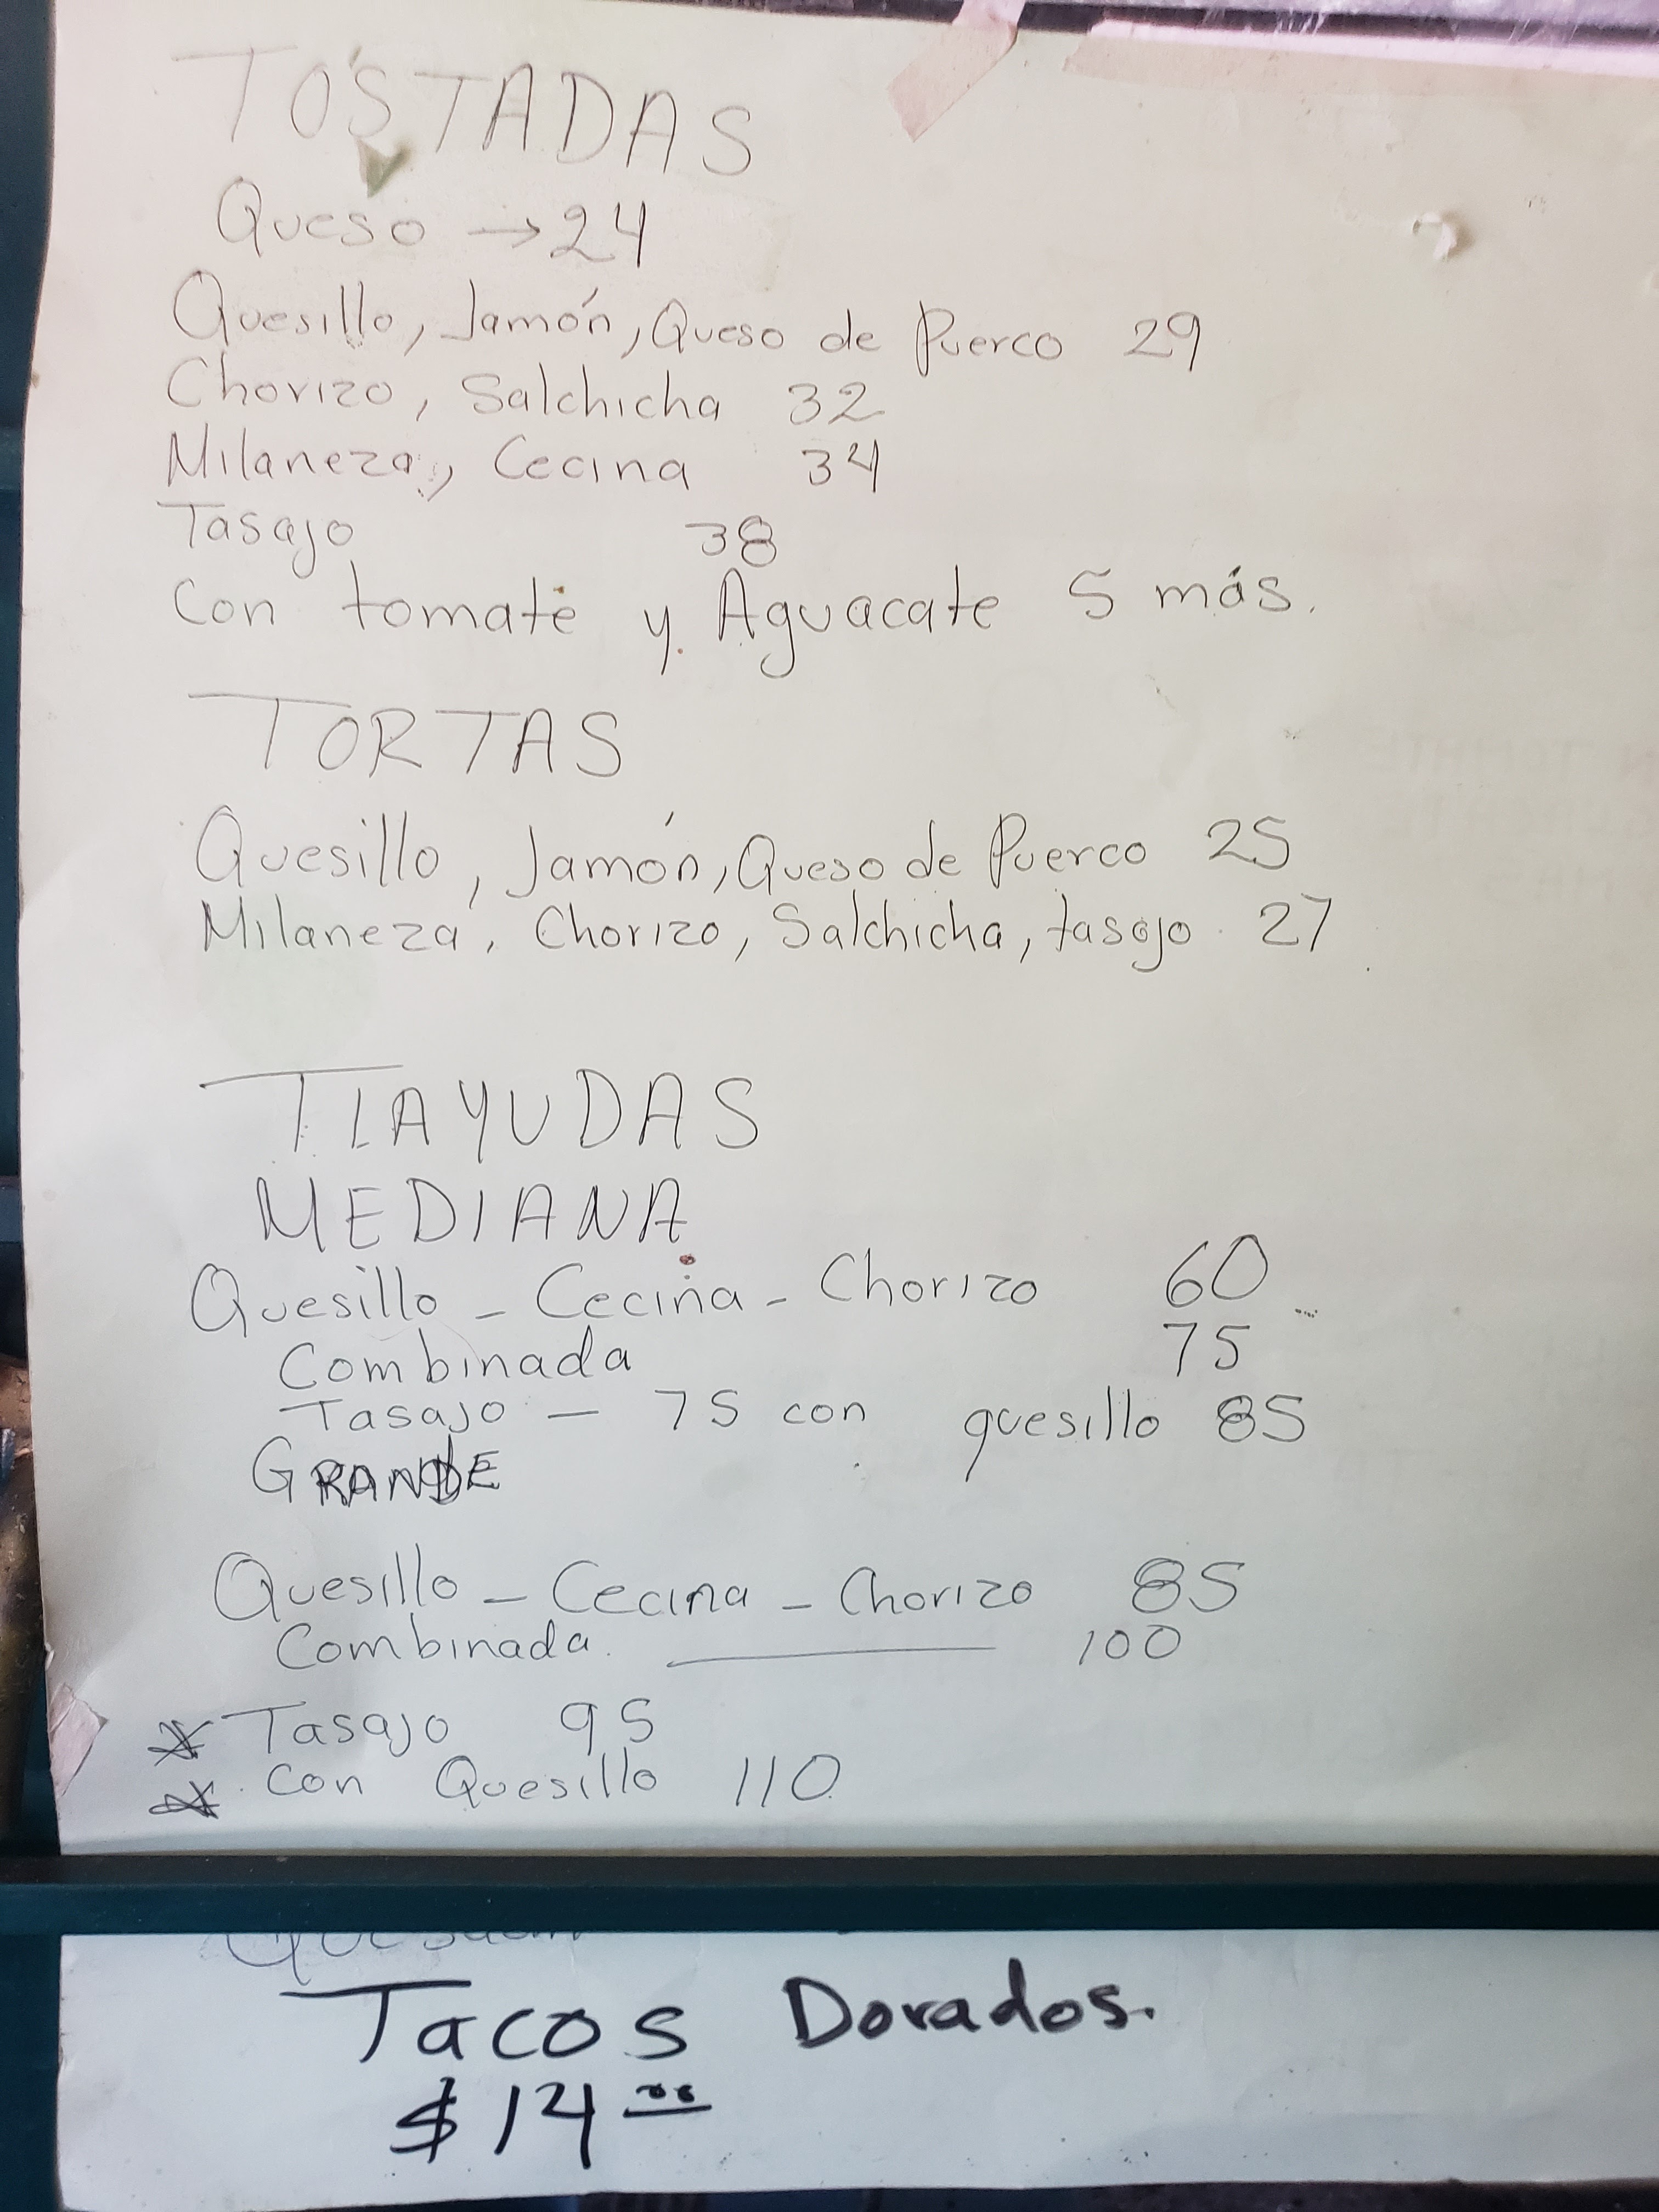 TOSTADAS
Queso → 24
Quesillo, Jamón, Queso de Puerco 29
Chorizo, Salchicha 32
Milaneza, Cecina 34
Tasajo 38
Con tomate y Aguacate 5 más.
TORTAS
Quesillo, Jamón, Queso de Puerco 25
Milaneza, Chorizo, Salchicha, tasajo 27
TLAYUDAS
MEDIANA
Quesillo - Cecina - Chorizo 60
Combinada 75
Tasajo - 75 con quesillo 85
GRANDE
Quesillo - Cecina - Chorizo 85
Combinada. ——— 100
* Tasajo 95
* Con Quesillo 110
Tacos Dorados.
$14 00